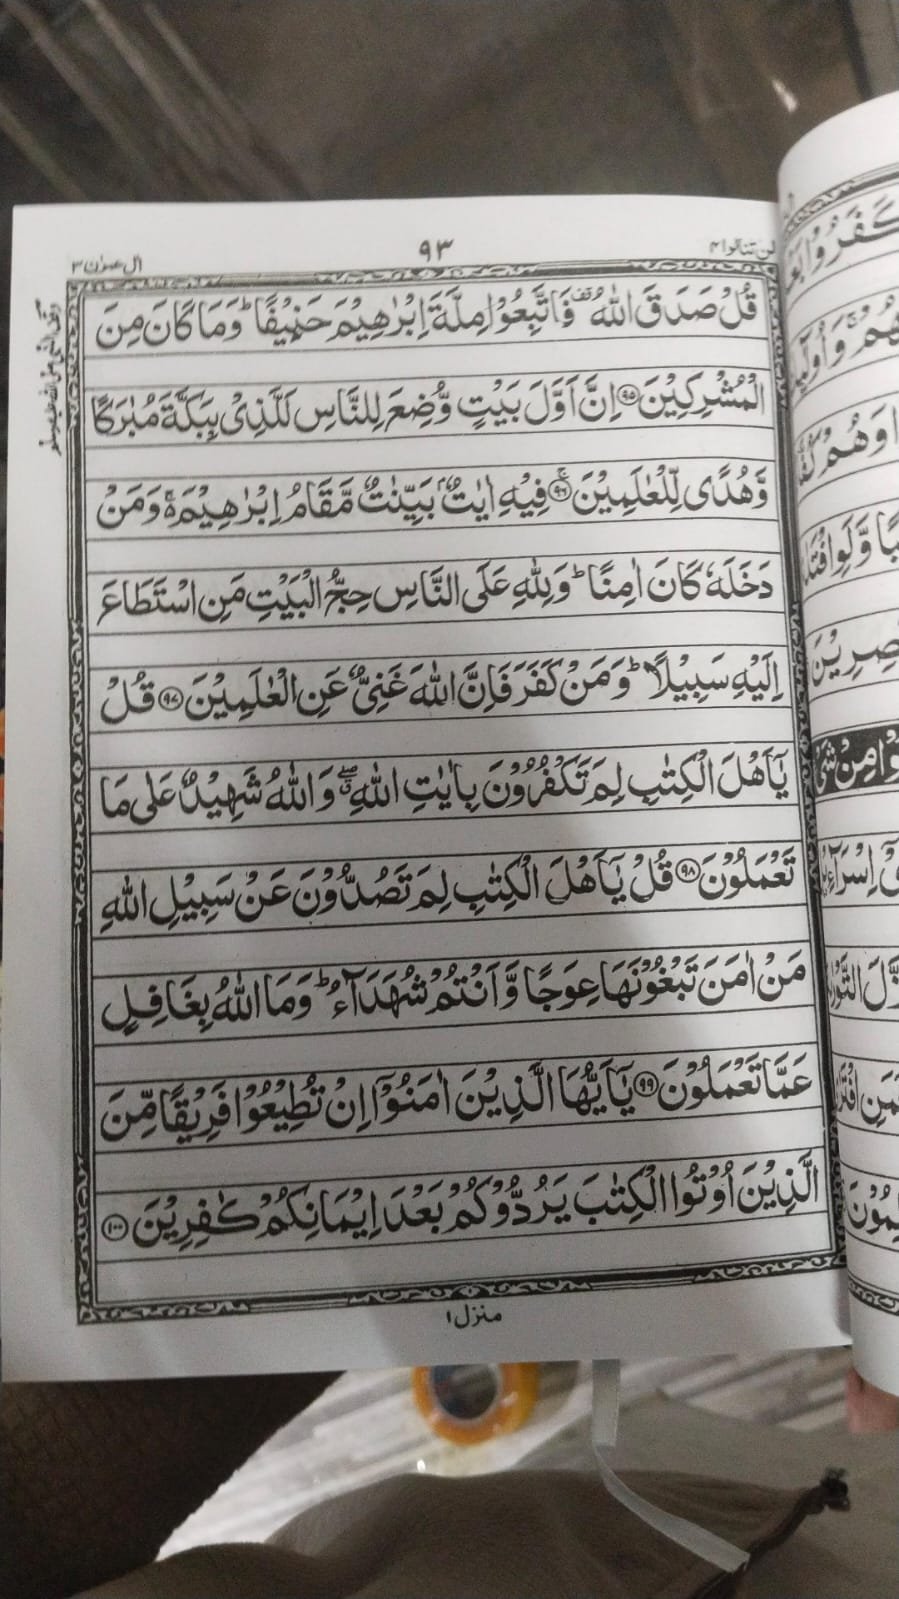 لن تنالوا ٤
٩٣
اٰل عمرٰن ٣
قُلْ صَدَقَ اللّٰهُ ۫ فَاتَّبِعُوْا مِلَّةَ اِبْرٰهِيْمَ حَنِيْفًا ؕ وَمَا كَانَ مِنَ
الْمُشْرِكِيْنَ ﴿٩٥﴾ اِنَّ اَوَّلَ بَيْتٍ وُّضِعَ لِلنَّاسِ لَلَّذِىْ بِبَكَّةَ مُبٰرَكًا
وَّهُدًى لِّلْعٰلَمِيْنَ ۚ﴿٩٦﴾ فِيْهِ اٰيٰتٌۢ بَيِّنٰتٌ مَّقَامُ اِبْرٰهِيْمَ ۚ۬ وَمَنْ
دَخَلَهٗ كَانَ اٰمِنًا ؕ وَلِلّٰهِ عَلَى النَّاسِ حِجُّ الْبَيْتِ مَنِ اسْتَطَاعَ
اِلَيْهِ سَبِيْلًا ؕ وَمَنْ كَفَرَ فَاِنَّ اللّٰهَ غَنِىٌّ عَنِ الْعٰلَمِيْنَ ﴿٩٧﴾ قُلْ
يٰٓاَهْلَ الْكِتٰبِ لِمَ تَكْفُرُوْنَ بِاٰيٰتِ اللّٰهِ ۖۗ وَاللّٰهُ شَهِيْدٌ عَلٰى مَا
تَعْمَلُوْنَ ﴿٩٨﴾ قُلْ يٰٓاَهْلَ الْكِتٰبِ لِمَ تَصُدُّوْنَ عَنْ سَبِيْلِ اللّٰهِ
مَنْ اٰمَنَ تَبْغُوْنَهَا عِوَجًا وَّاَنْتُمْ شُهَدَآءُ ؕ وَمَا اللّٰهُ بِغَافِلٍ
عَمَّا تَعْمَلُوْنَ ﴿٩٩﴾ يٰٓاَيُّهَا الَّذِيْنَ اٰمَنُوْٓا اِنْ تُطِيْعُوْا فَرِيْقًا مِّنَ
الَّذِيْنَ اُوْتُوا الْكِتٰبَ يَرُدُّوْكُمْ بَعْدَ اِيْمَانِكُمْ كٰفِرِيْنَ ﴿١٠٠﴾
منزل ١